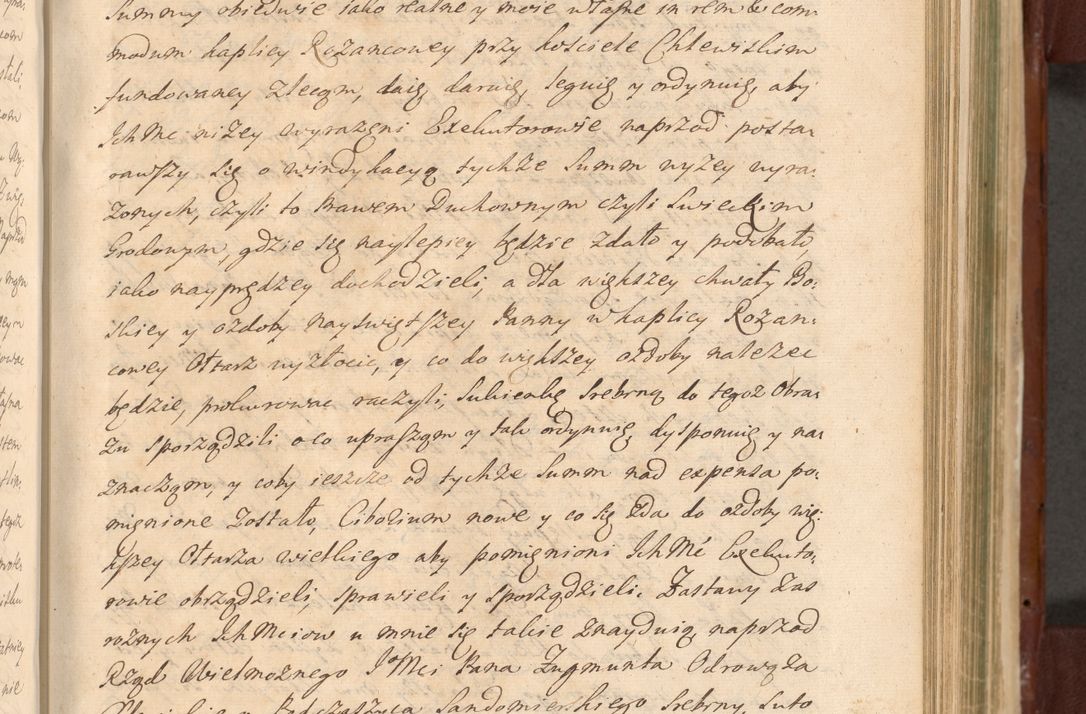 Summy obiedwie iako realne y moie własne in rem & com-
modum kaplicy Rozancowey przy kosciele Chlewiskim
fundowaney zlecąm, daię, daruię, leguię y ordynuię, aby
Ich Mc niżey wyrazęni Exekutorowie naprzod posta-
rawszy się o windykacyą tychże Summ wyżey wyra-
żonych, czyli to Prawem Duchownym czyli Swieckim
Grodowym, gdzie się naylepiey będzie zdało y podobało,
iako nayprędzey dochodzieli, a dla większey chwały Bo-
skiey y ozdoby nayswiętszey Panny w kaplicy Rożan-
cowey Ołtarz wyzłocic, y co do większey ozdoby nalezec
będzie, prokurowac raczyli, Sukienkę Srebrną do tegoż Obra-
zu sporządzili o co uprasząm y tak ordynuię, dysponuię y na-
znacząm, y coby ieszcze od tychże Summ nad expensa po-
mięnione zostało, Ciborium nowe y co się zda do ozdoby wię-
kszey Ołtarza wielkiego aby pomięnioni Ich Mć Exekuto-
rowie obrządzieli, sprawieli y sporządzieli. Zastawy zas
rożnych Ich Mciow u mnie się takie znayduią, naprzod
Rząd Wielmożnego JMci Pana Zygmunta Odrowąża
Podczaszyca Sandomierskiego Srebrny, suto